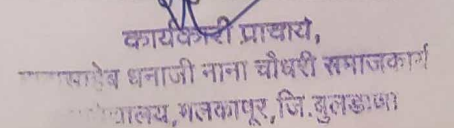 कार्यकारी प्राचार्य,
साहेब धनाजी नाना चौधरी समाजकार्य
मलकापूर, जि. बुलडाणा